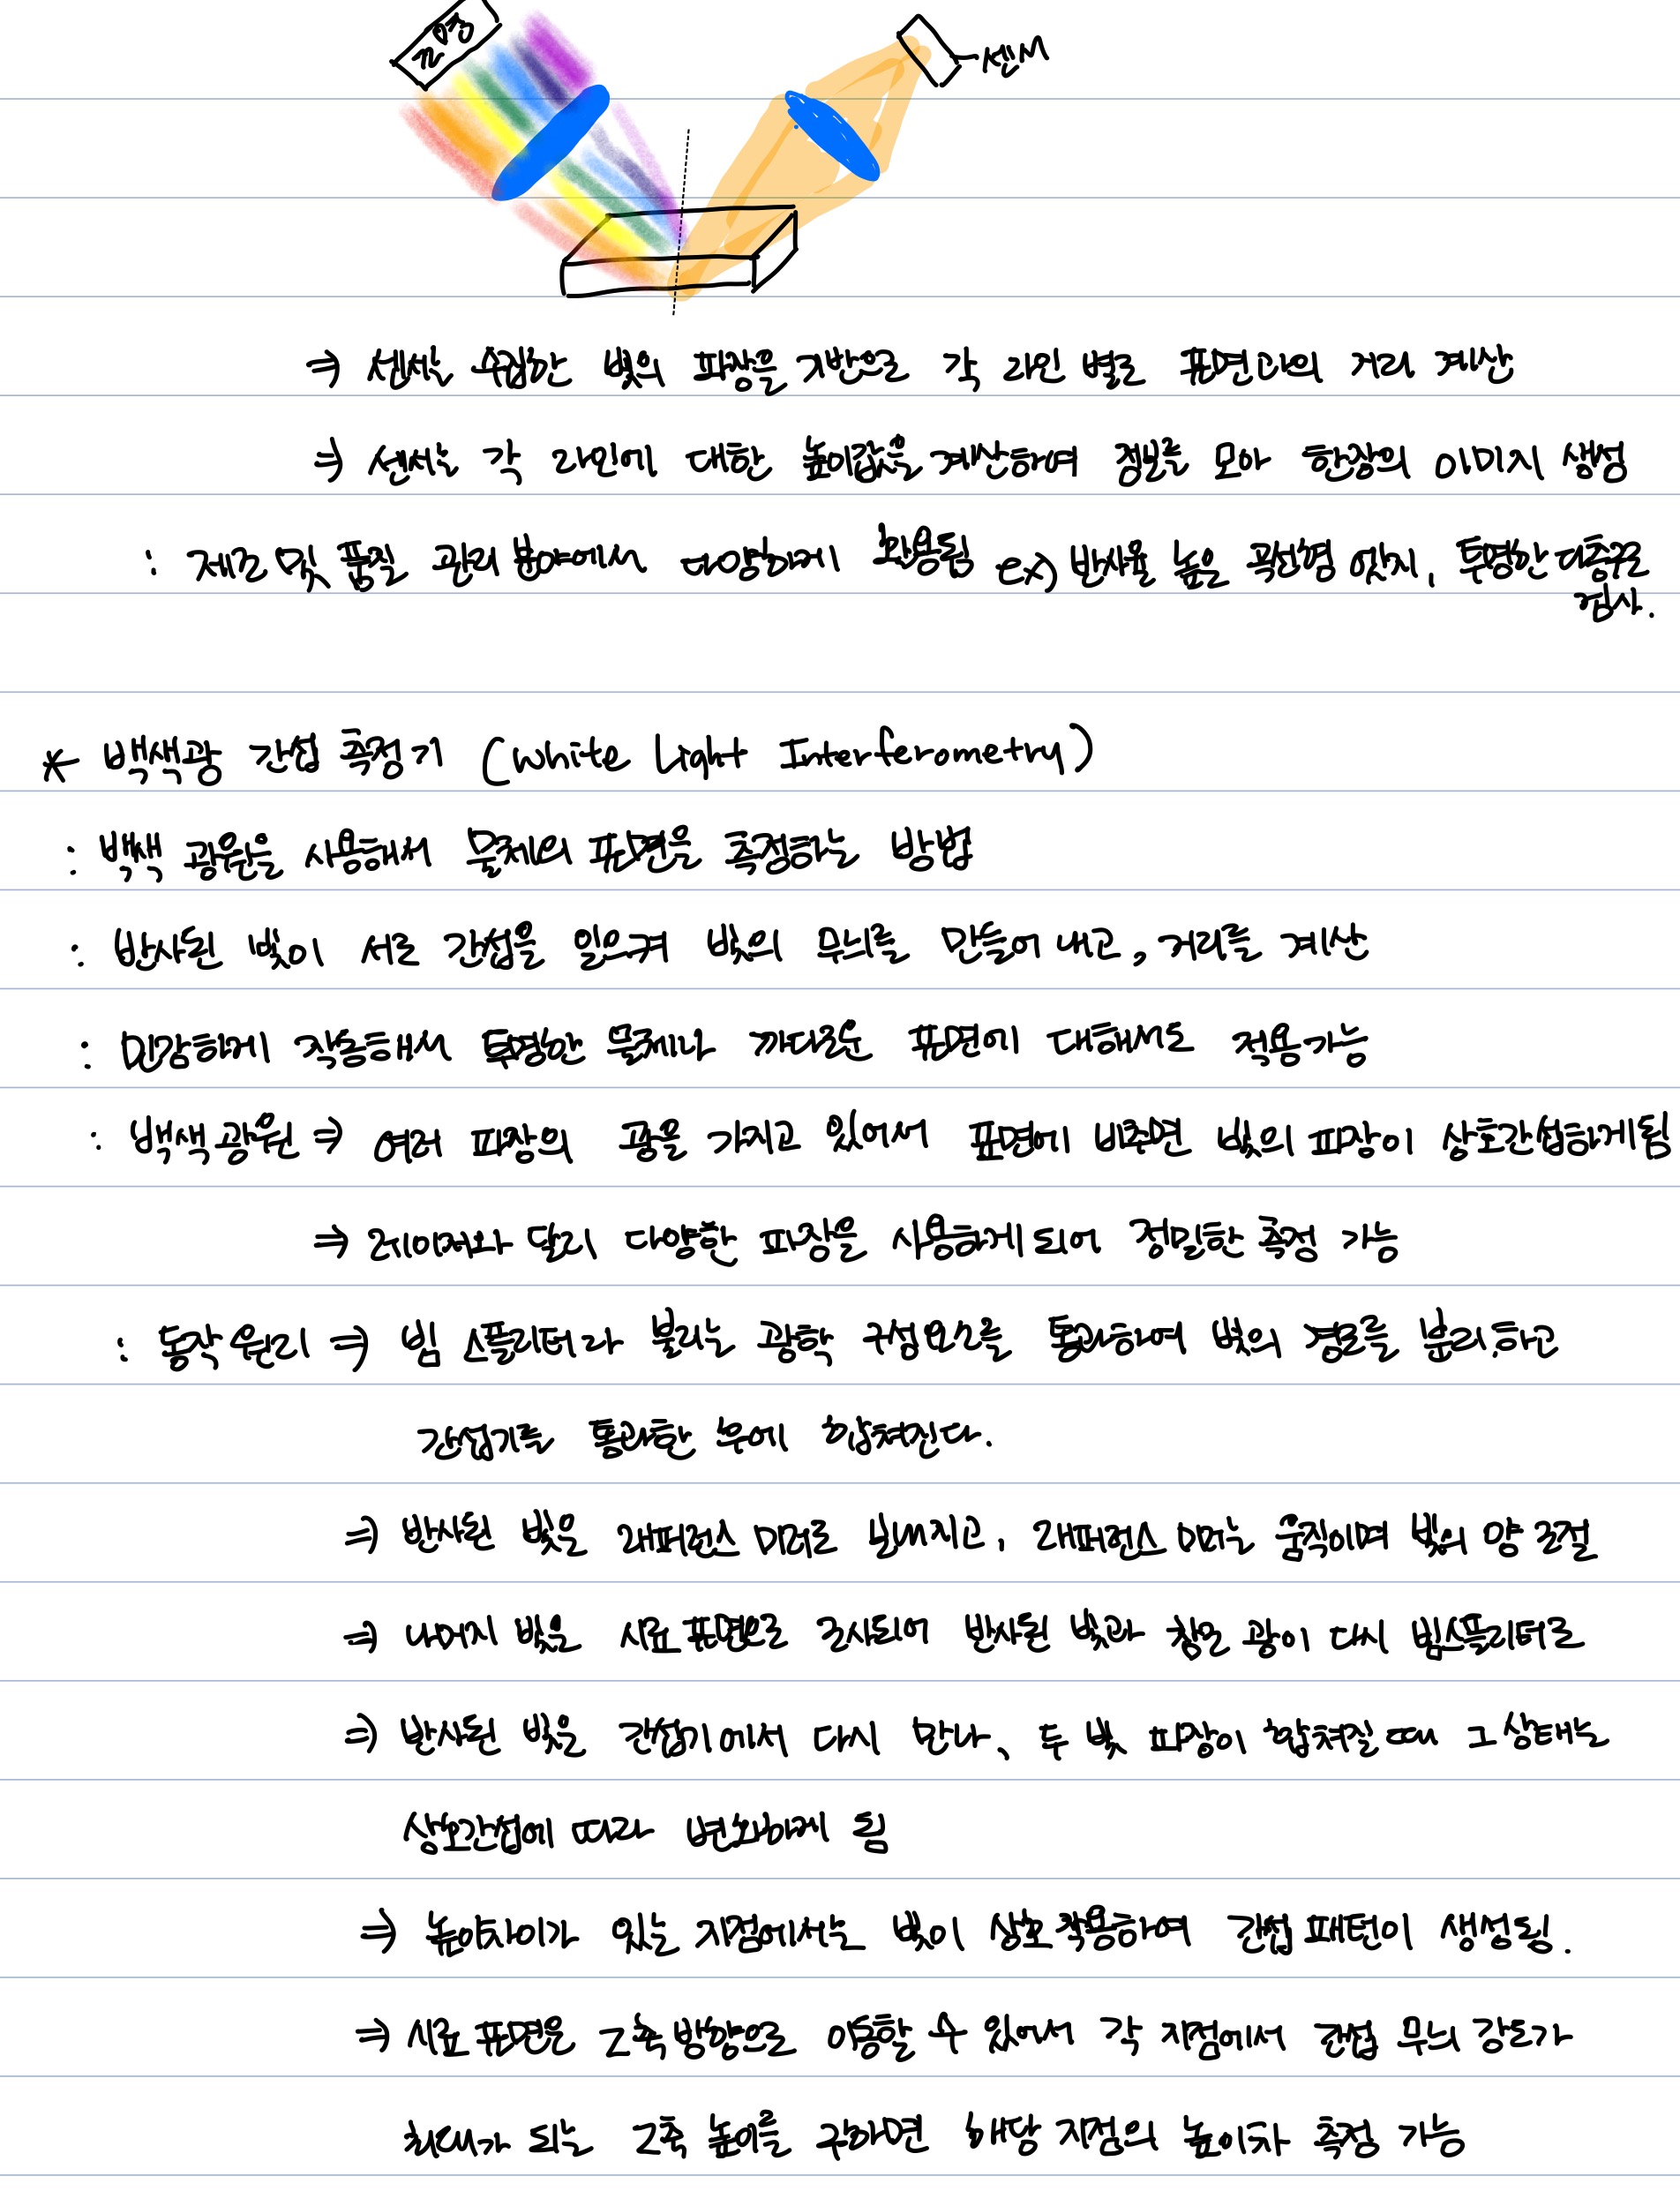 조명
센서
⇒ 센서는 수집한 빛의 파장을 기반으로 각 라인 별로 표면과의 거리 계산
⇒ 센서는 각 라인에 대한 높이값을 계산하여 정보를 모아 한장의 이미지 생성
: 제조 및 품질 관리 분야에서 다양하게 활용됨 ex) 반사율 높은 곡선형 엣지, 투명한 다층구조
검사.
* 백색광 간섭 측정기 (White Light Interferometry)
: 백색 광원을 사용해서 물체의 표면을 측정하는 방법
: 반사된 빛이 서로 간섭을 일으켜 빛의 무늬를 만들어 내고, 거리를 계산
: 민감하게 작동해서 투명한 물체나 까다로운 표면에 대해서도 적용가능
: 백색 광원 ⇒ 여러 파장의 광을 가지고 있어서 표면에 비추면 빛의 파장이 상호간섭하게됨
⇒ 레이저와 달리 다양한 파장을 사용하게 되어 정밀한 측정 가능
: 동작 원리 ⇒ 빔 스플리터라 불리는 광학 구성요소를 통과하여 빛의 경로를 분리하고
간섭기를 통과한 후에 합쳐진다.
⇒ 반사된 빛은 래퍼런스 미러로 보내지고, 래퍼런스 미러는 움직이며 빛의 양 조절
⇒ 나머지 빛은 시료 표면으로 조사되어 반사된 빛과 참조 광이 다시 빔스플리터로
⇒ 반사된 빛은 간섭기에서 다시 만나, 두 빛 파장이 합쳐질 때 그 상태는
상호간섭에 따라 변화하게 됨
⇒ 높이차이가 있는 지점에서는 빛이 상호작용하여 간섭 패턴이 생성됨.
⇒ 시료 표면은 Z축 방향으로 이동할 수 있어서 각 지점에서 간섭 무늬 강도가
최대가 되는 Z축 높이를 구하면 해당 지점의 높이차 측정 가능